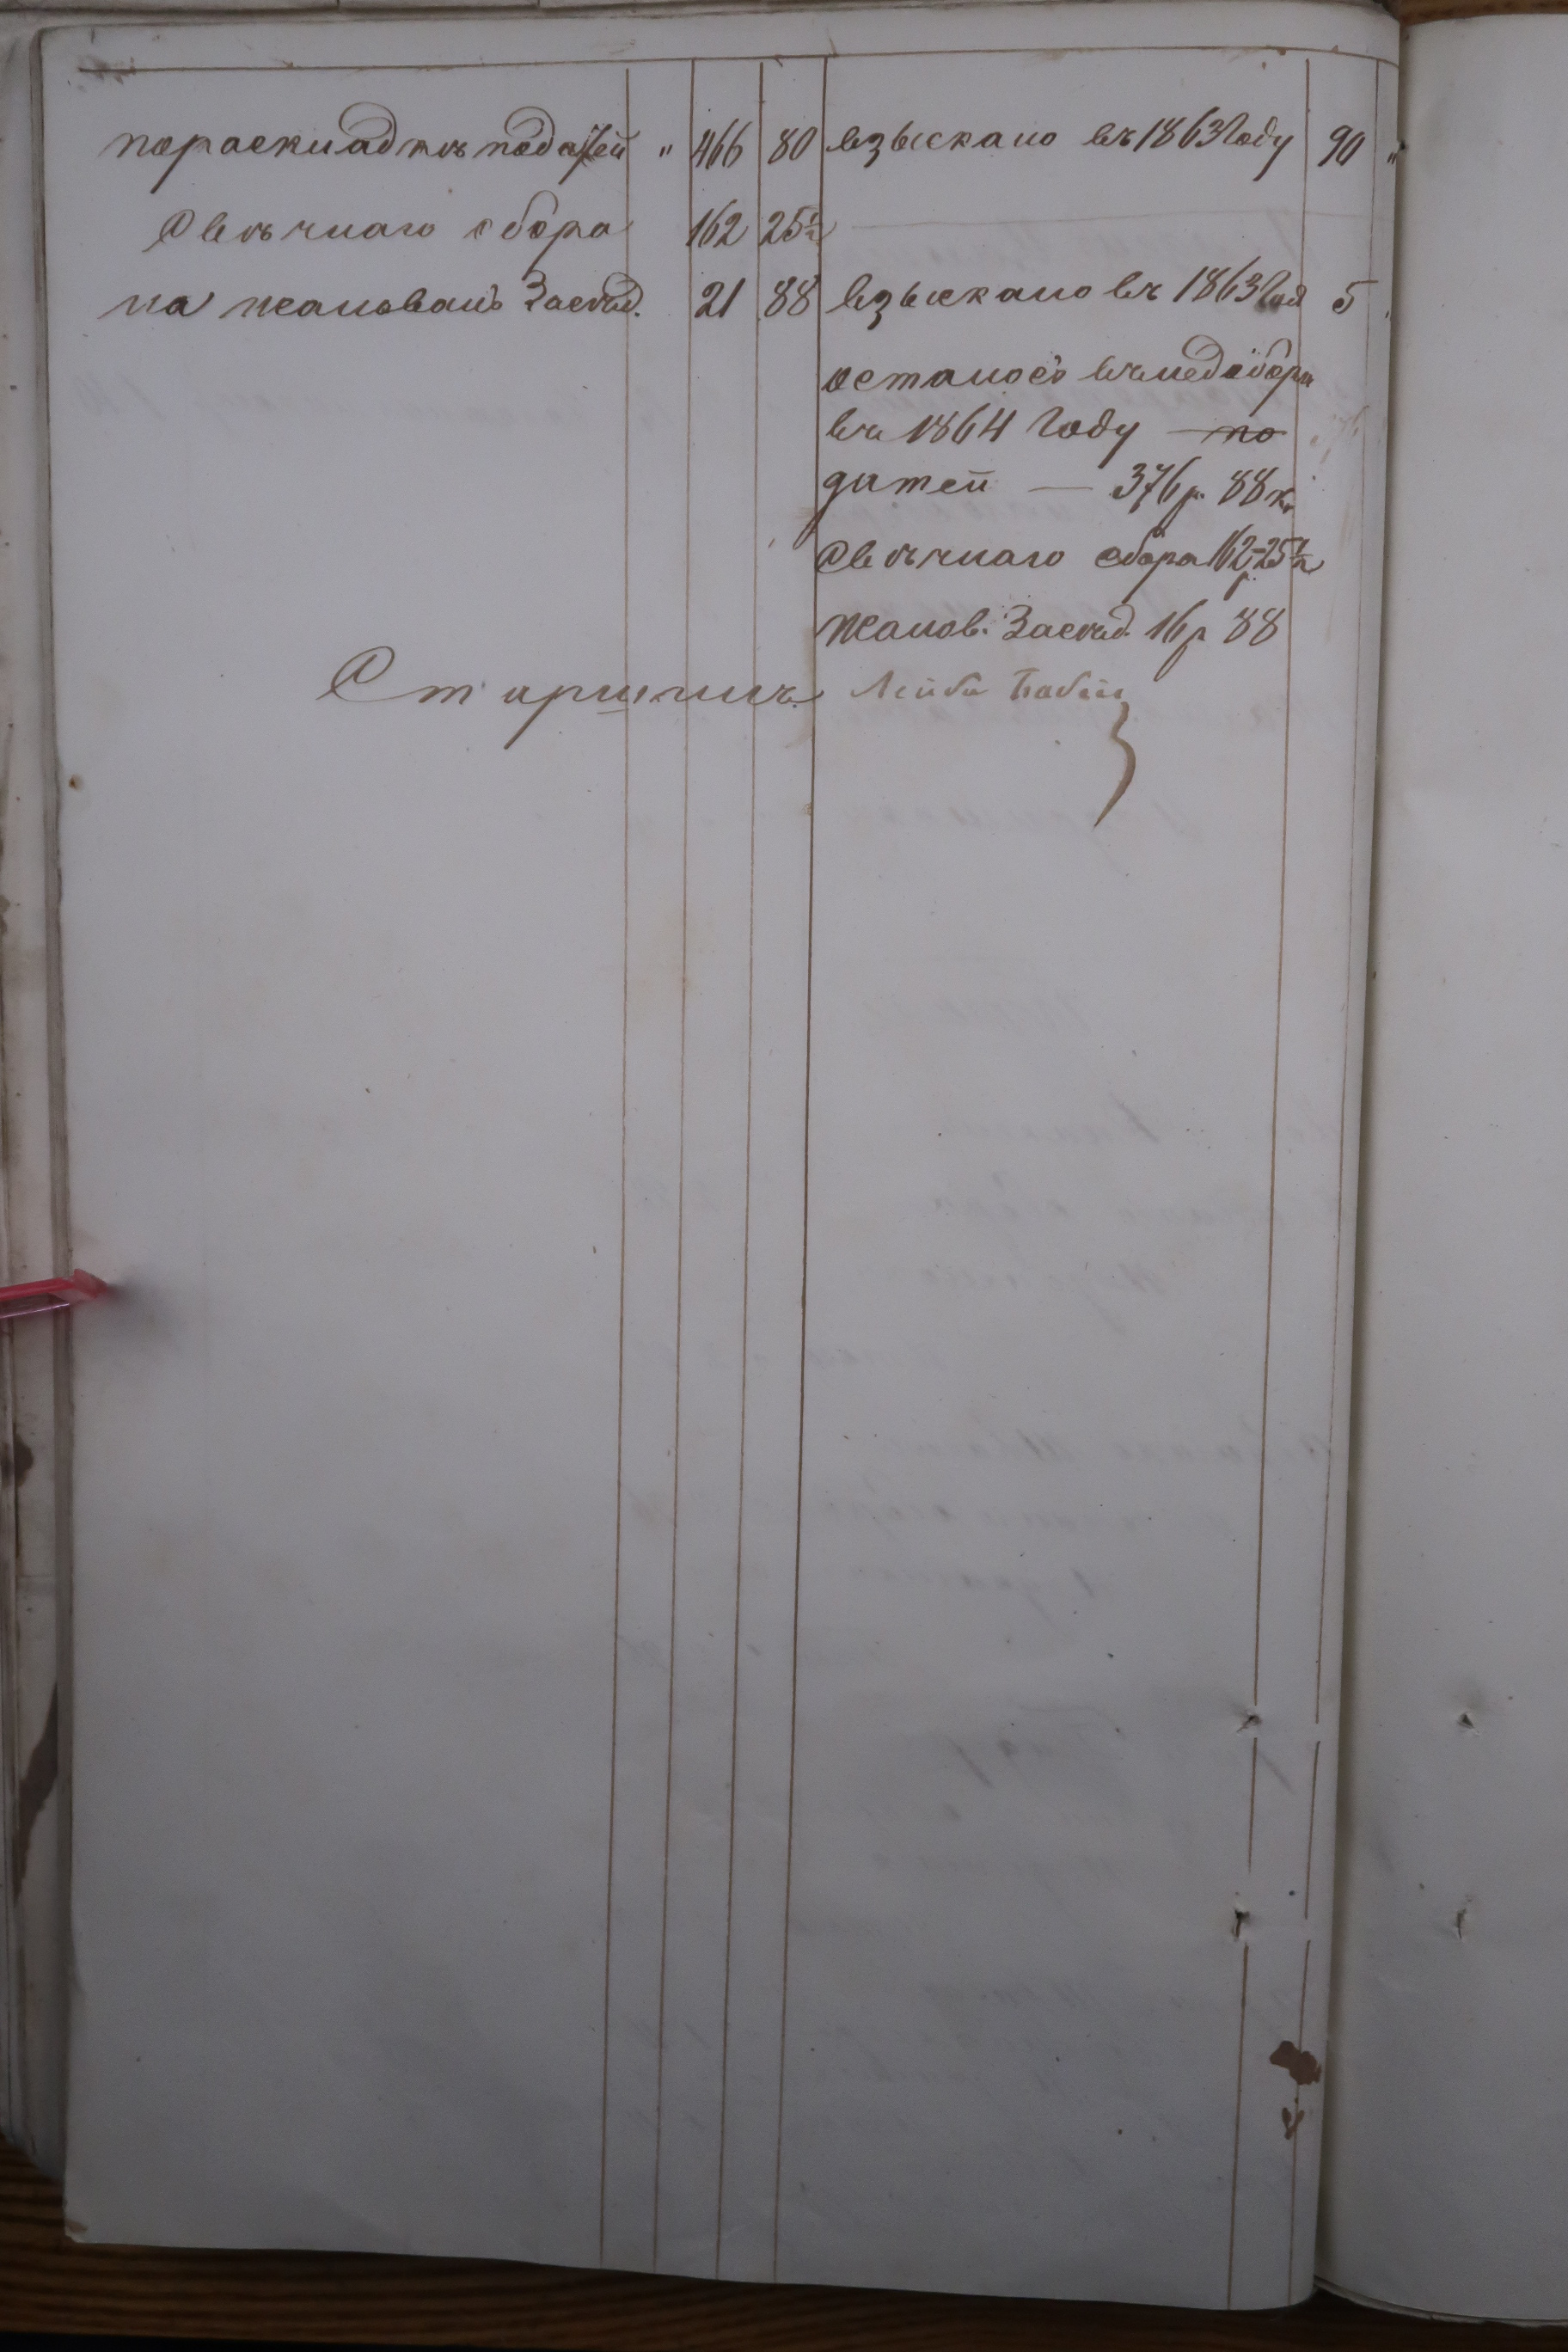 пораскладкѣ податей " 466 80 взыскано въ 1863 Году 90 "
Свѣчнаго сбора 162 25½
на жалованъ Засѣд. 21 88 взыскано въ 1863 Год 5
осталось въ недоборѣ
въ 1864 Году — по
датей — 376 р. 88 к.
Свѣчнаго сбора 162 р. - 25½
Жалов. Засѣд. 16 р 88
Старшина Лейба Бабій